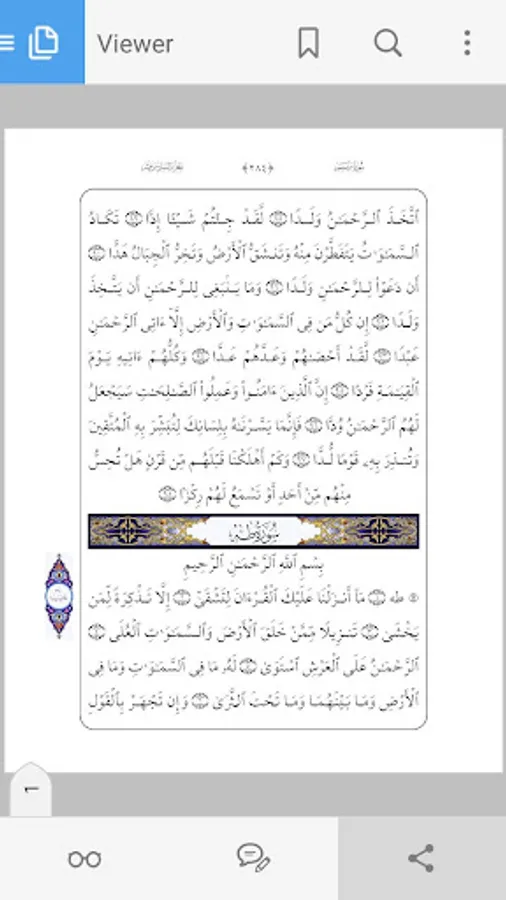 Viewer
﴿٢٨٤﴾
ٱتَّخَذَ ٱلرَّحْمَـٰنُ وَلَدًا لَّقَدْ جِئْتُمْ شَيْـًٔا إِدًّا تَكَادُ
ٱلسَّمَـٰوَٰتُ يَتَفَطَّرْنَ مِنْهُ وَتَنشَقُّ ٱلْأَرْضُ وَتَخِرُّ ٱلْجِبَالُ هَدًّا
أَن دَعَوْا۟ لِلرَّحْمَـٰنِ وَلَدًا وَمَا يَنۢبَغِى لِلرَّحْمَـٰنِ أَن يَتَّخِذَ
وَلَدًا إِن كُلُّ مَن فِى ٱلسَّمَـٰوَٰتِ وَٱلْأَرْضِ إِلَّآ ءَاتِى ٱلرَّحْمَـٰنِ
عَبْدًا لَّقَدْ أَحْصَىٰهُمْ وَعَدَّهُمْ عَدًّا وَكُلُّهُمْ ءَاتِيهِ يَوْمَ
ٱلْقِيَـٰمَةِ فَرْدًا إِنَّ ٱلَّذِينَ ءَامَنُوا۟ وَعَمِلُوا۟ ٱلصَّـٰلِحَـٰتِ سَيَجْعَلُ
لَهُمُ ٱلرَّحْمَـٰنُ وُدًّا فَإِنَّمَا يَسَّرْنَـٰهُ بِلِسَانِكَ لِتُبَشِّرَ بِهِ ٱلْمُتَّقِينَ
وَتُنذِرَ بِهِۦ قَوْمًا لُّدًّا وَكَمْ أَهْلَكْنَا قَبْلَهُم مِّن قَرْنٍ هَلْ تُحِسُّ
مِنْهُم مِّنْ أَحَدٍ أَوْ تَسْمَعُ لَهُمْ رِكْزًۢا
سُورَةُ طه
بِسْمِ ٱللَّهِ ٱلرَّحْمَـٰنِ ٱلرَّحِيمِ
طه مَآ أَنزَلْنَا عَلَيْكَ ٱلْقُرْءَانَ لِتَشْقَىٰٓ إِلَّا تَذْكِرَةً لِّمَن
يَخْشَىٰ تَنزِيلًا مِّمَّنْ خَلَقَ ٱلْأَرْضَ وَٱلسَّمَـٰوَٰتِ ٱلْعُلَى
ٱلرَّحْمَـٰنُ عَلَى ٱلْعَرْشِ ٱسْتَوَىٰ لَهُۥ مَا فِى ٱلسَّمَـٰوَٰتِ وَمَا فِى
ٱلْأَرْضِ وَمَا بَيْنَهُمَا وَمَا تَحْتَ ٱلثَّرَىٰ وَإِن تَجْهَرْ بِٱلْقَوْلِ